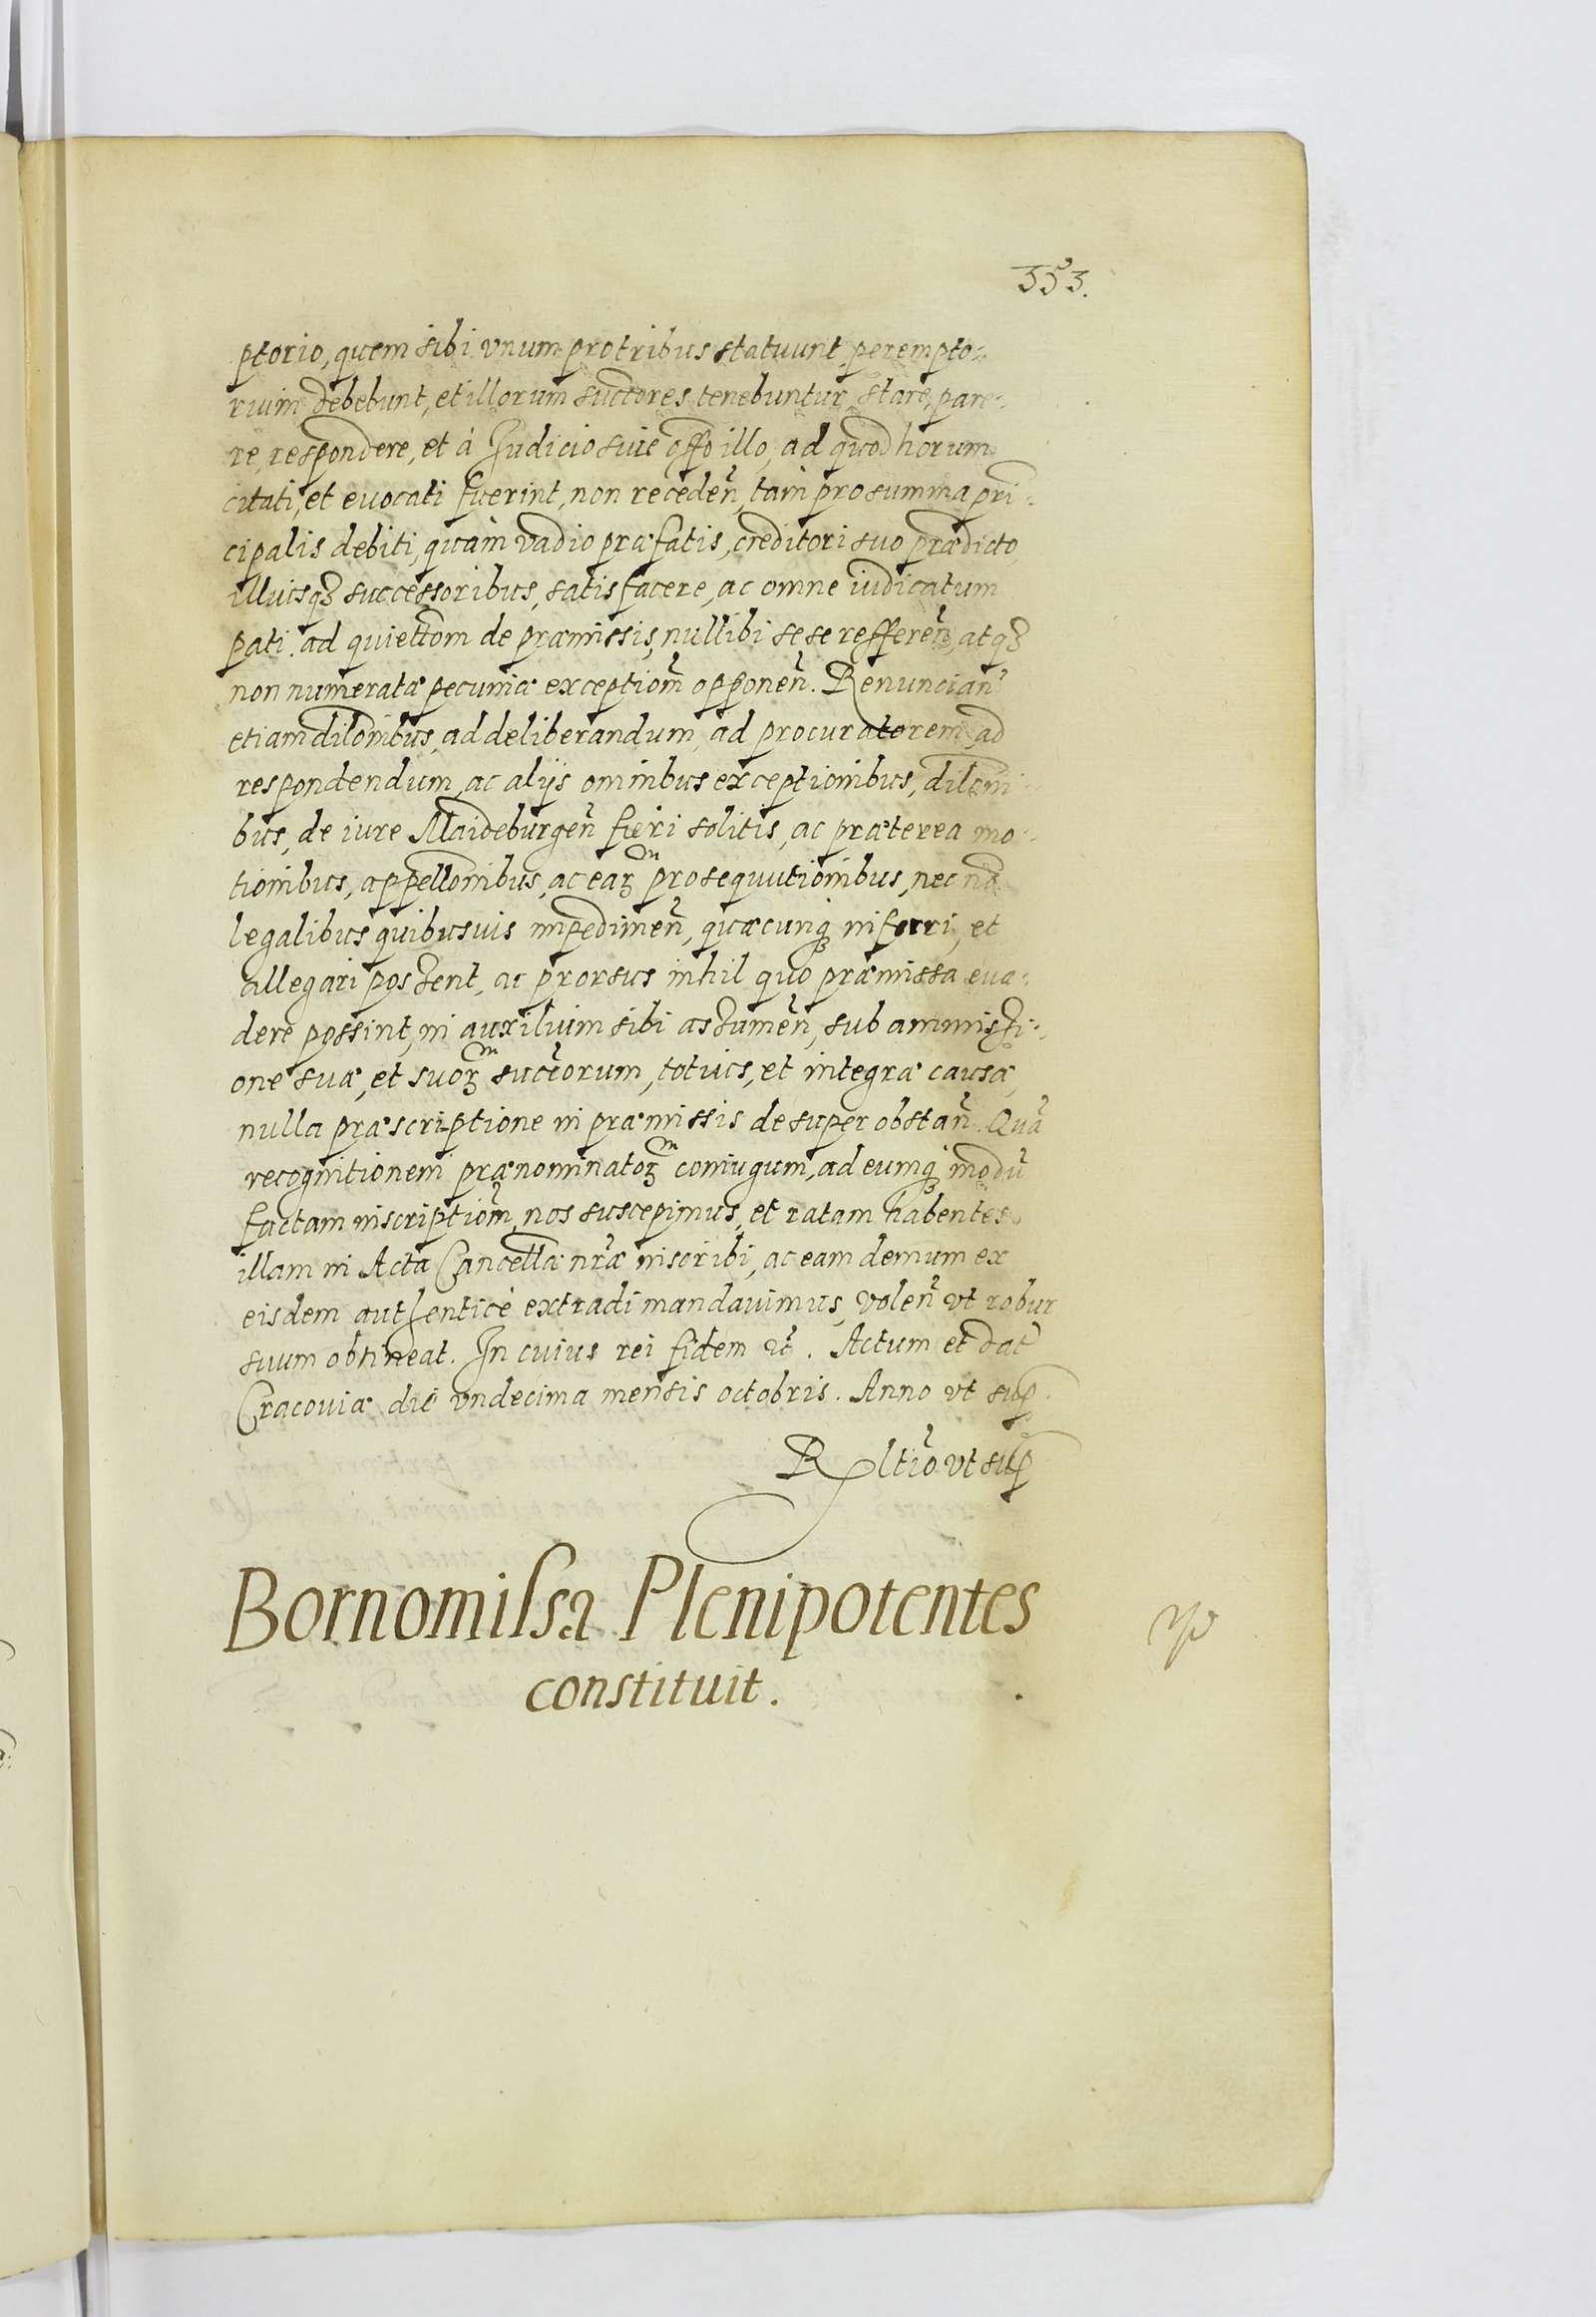 353.
ptorio, quem sibi vnum pro tribus statuunt, perempto:
rium debebunt, et illorum suctores tenebuntur, stare, pare:
re, respondere, et à Judicio siue offo illo, ad quod horum
citati, et euocati fuerint, non recedeñ, tam pro summa pri:
cipalis debiti, quàm vadio præfatis, creditori suo prædicto,
illiusqꝫ successoribus, satisfacere, ac omne iudicatum
pati. ad quiettom de præmissis, nullibi sese refferen̄, atqꝫ
non numeratæ pecuniæ exceptiom̄ opponen̄. Renuncian̄
etiam dilonibus, ad deliberandum, ad procuratorem, ad
respondendum, ac alijs omnibus exceptionibus, diloni:
bus, de iure Maideburgen̄ fieri solitis, ac præterea mo:
tionibus, appellonibus, ac eaꝝ prosequutionibus, nec nō
legalibus quibusuis impedimen̄, quæcunqꝫ inferri, et
allegari possent, ac prorsus nihil quo præmissa eua:
dere possint, in auxilium sibi assumen̄, sub ammissi:
one suæ, et suoꝝ succeorum, totius, et integræ causæ,
nulla præscriptione in præmissis desuper obstan̄. Quā
recognitionem prænominatoꝝ coniugum, ad eumqꝫ modū
factam inscriptiom̄, nos suscepimus, et ratam habentes
illam in Acta Cancellæ nr̄æ inscribi, ac eam demum ex
eisdem authenticè extradi mandauimus, volen̄ vt robur
suum obtineat. In cuius rei fidem etc̄. Actum et dat̄
Cracouiæ die vndecima mensis octobris. Anno vt sup.
Rltio vt sup
Bornomissa Plenipotentes
constituit.